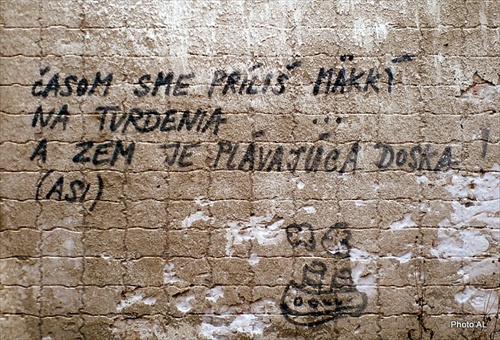 ČASOM SME PRÍLIŠ MÄKKÍ
NA TVRDENIA ...
A ZEM JE PLÁVAJÚCA DOSKA !
(ASI)
Photo AL